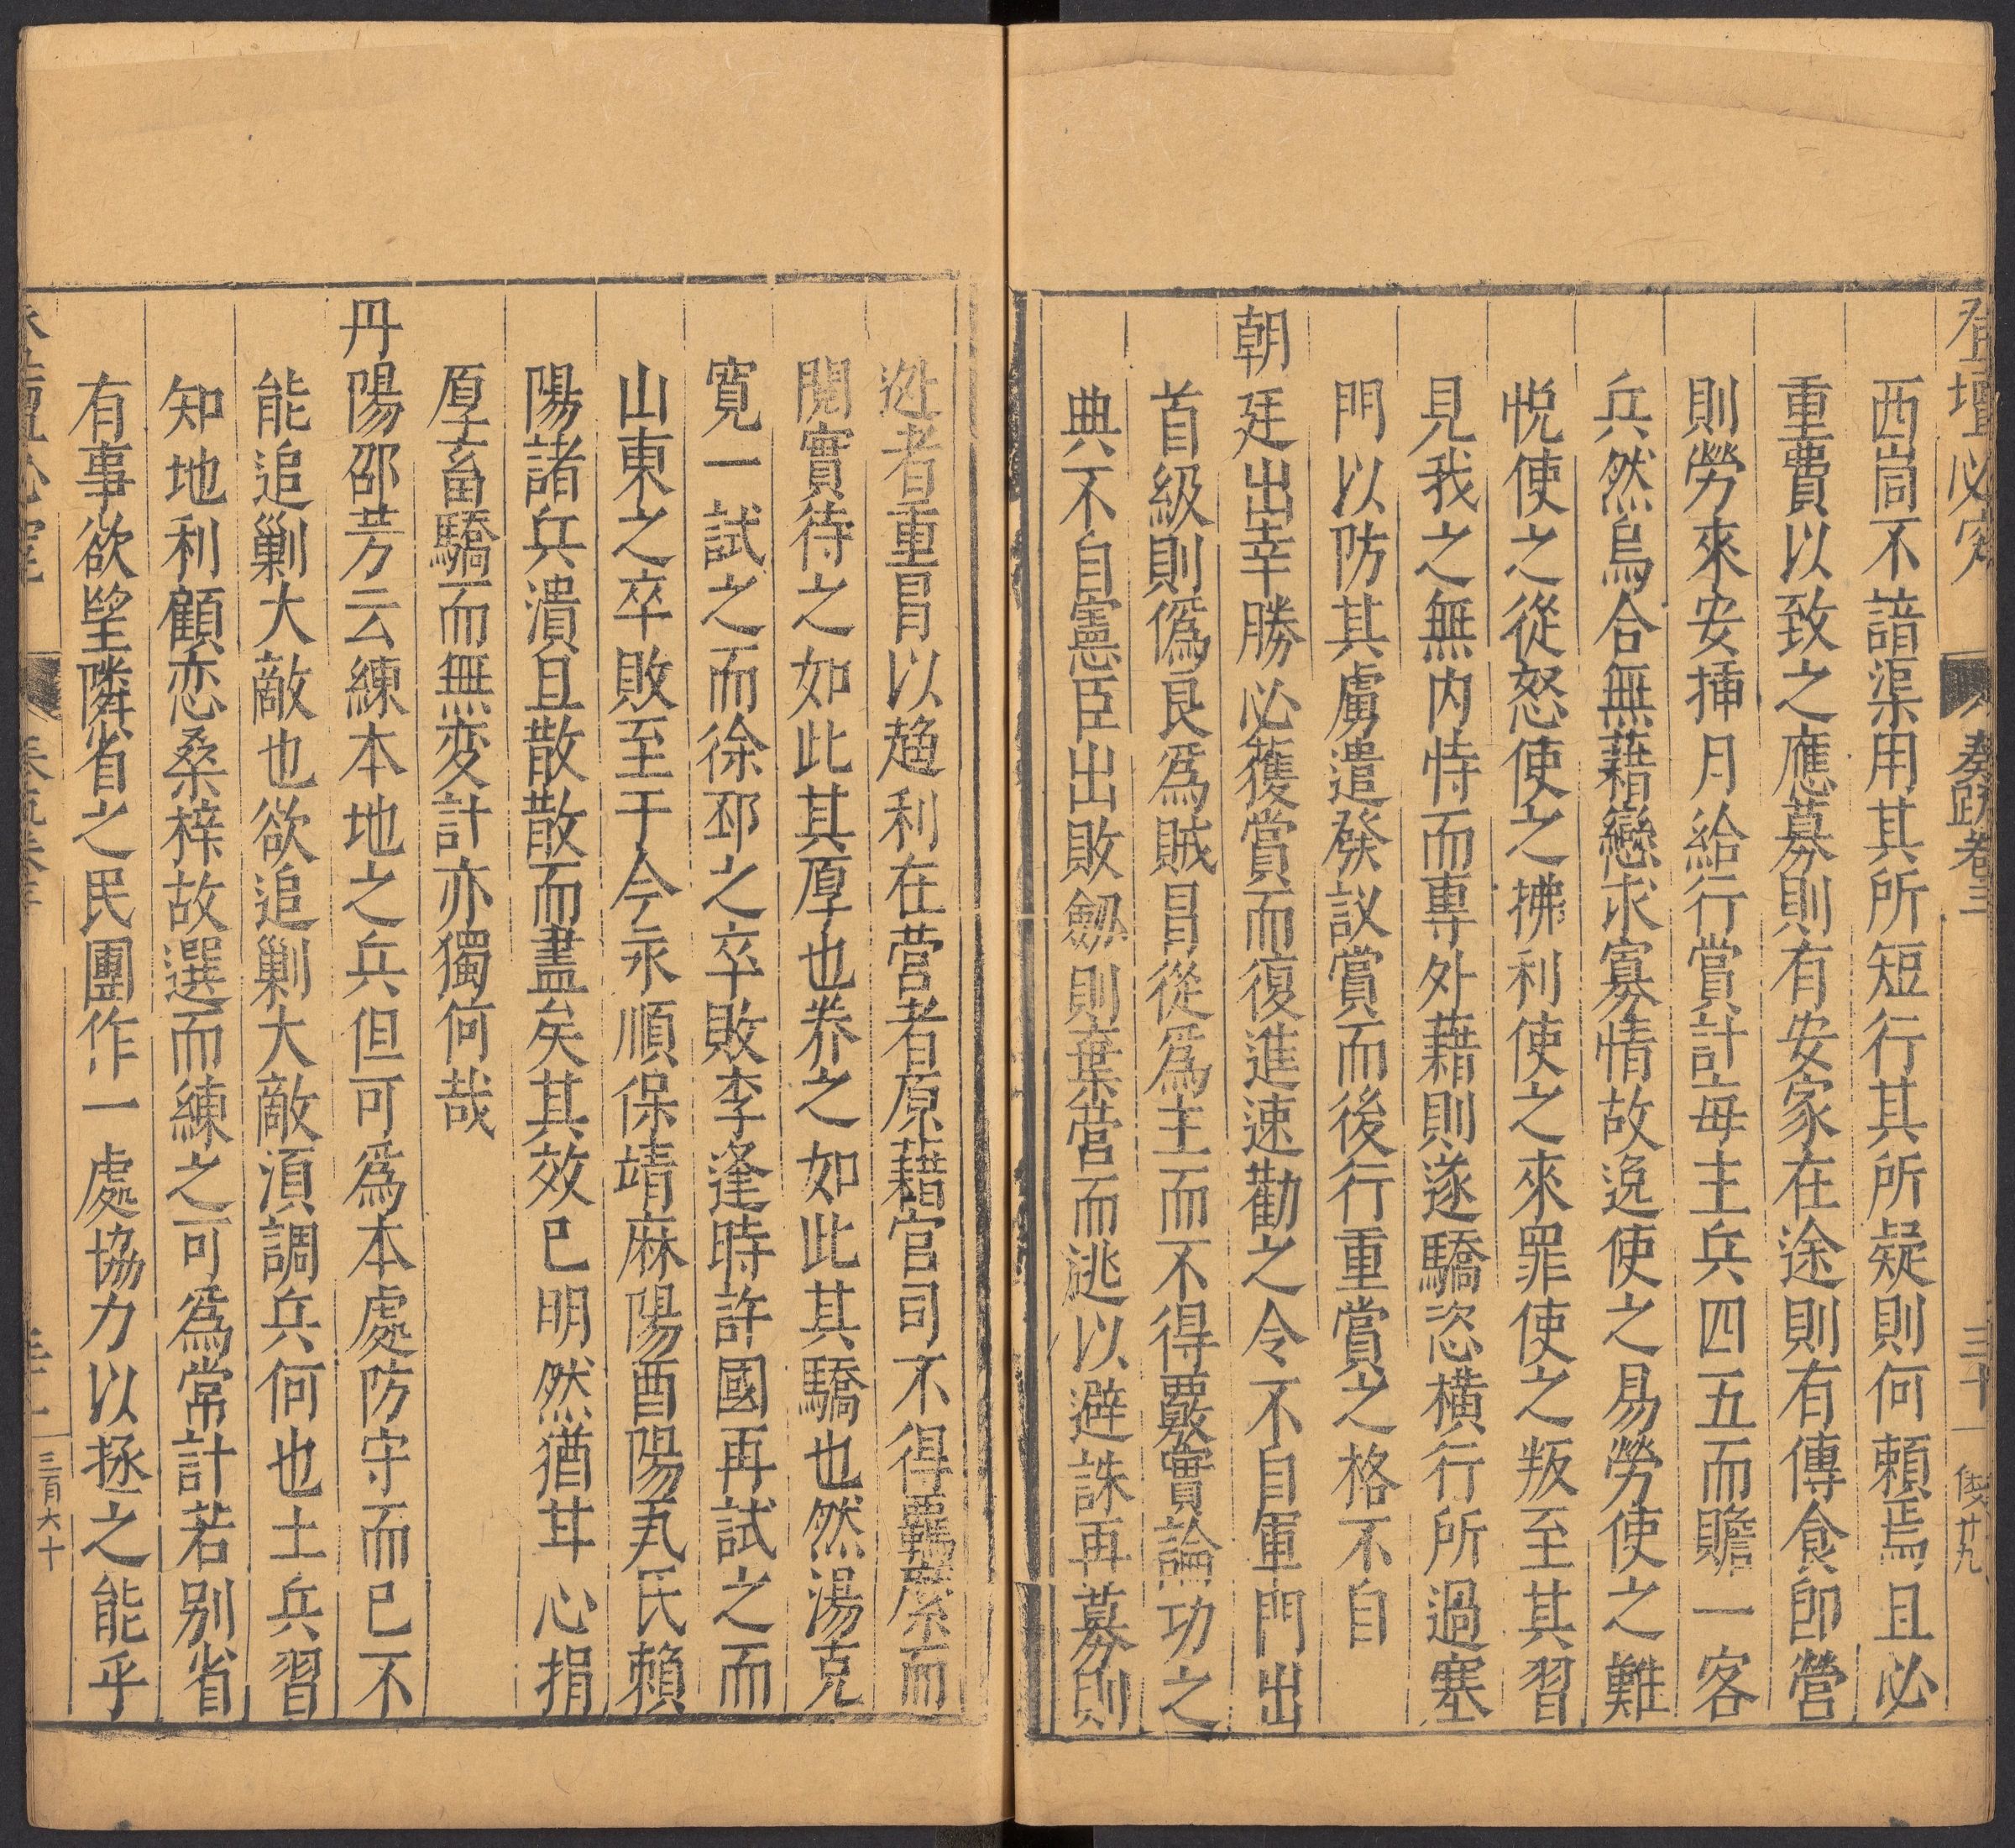 登壇必究 奏疏卷三 三十 俊廿九
西峝不諳渠用其所短行其所疑則何賴焉且必
重費以致之應募則有安家在途則有傳食卽營
則勞來安挿月給行賞計每主兵四五而贍一客
兵然烏合無藉戀求寡情故逸使之易勞使之難
悅使之從怒使之拂利使之來罪使之叛至其習
見我之無内恃而專外藉則遂驕恣横行所過塞
門以防其虜遣發議賞而後行重賞之格不自
朝廷出幸勝必獲賞而復進速勸之令不自軍門出
首級則僞良爲賊冒從爲主而不得覈實論功之
典不自憲臣出敗劒則棄營而逃以避誅再募則
逃者重冒以趨利在營者原藉官司不得覊縻而
閱實待之如此其厚也養之如此其驕也然湯克
寬一試之而徐邳之卒敗李逢時許國再試之而
山東之卒敗至于今永順保靖麻陽酉陽兲氏賴
陽諸兵潰且散散而盡矣其效已明然猶甘心捐
厚畜驕而無変計亦獨何哉
丹陽邵芳云練本地之兵但可爲本處防守而已不
能追剿大敵也欲追剿大敵湏調兵何也土兵習
知地利顧恋桑梓故選而練之可爲常計若别省
有事欲望隣省之民團作一處協力以拯之能乎
登壇必究 奏疏卷三 三十一 三百六十